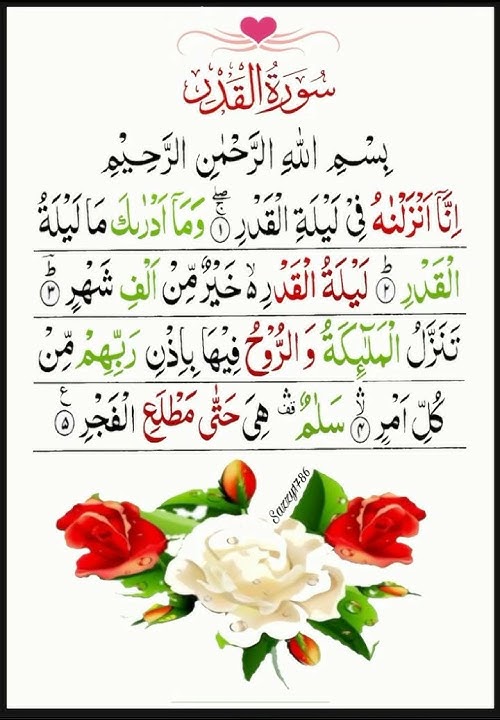 سُورَةُ الْقَدْرِ
بِسْمِ اللهِ الرَّحْمٰنِ الرَّحِيْمِ
اِنَّآ اَنْزَلْنٰهُ فِیْ لَيْلَةِ الْقَدْرِ ۖۚ ۱ وَمَآ اَدْرٰىكَ مَا لَيْلَةُ
الْقَدْرِ ؕ ۲ لَيْلَةُ الْقَدْرِ ۙ خَيْرٌ مِّنْ اَلْفِ شَهْرٍ ؕ ۳
تَنَزَّلُ الْمَلٰٓئِكَةُ وَالرُّوْحُ فِيْهَا بِاِذْنِ رَبِّهِمْ مِّنْ
كُلِّ اَمْرٍ ۙ ۴ سَلٰمٌ ۛ هِیَ حَتّٰی مَطْلَعِ الْفَجْرِ ۵ ع
Sazzy1786